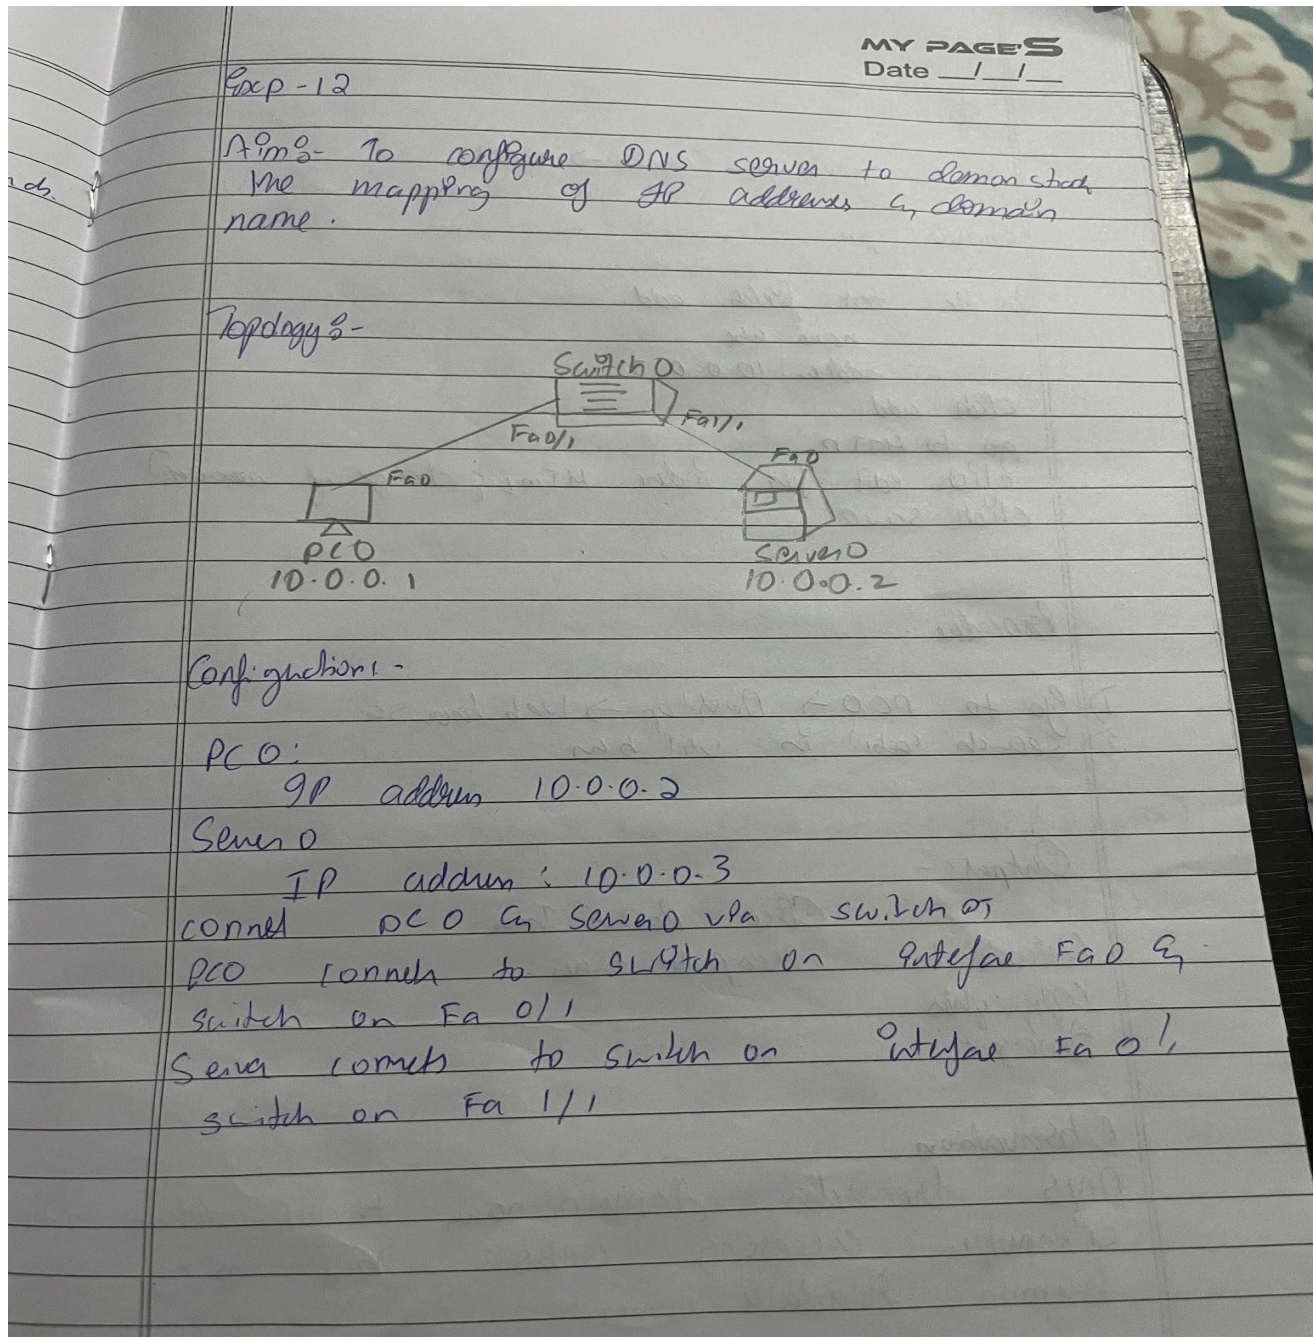 MY PAGE'S
Date __/__/__
Exp - 12
Aim:- To configure DNS server to demonstrate
the mapping of IP addresses & domain
name.
Topology:-
Switch 0
Fa0/1
Fa1/1
Fa0
Fa0
PC0
Server0
10.0.0.1
10.0.0.2
Configuration:-
PC0:
IP address 10.0.0.2
Server 0
IP address : 10.0.0.3
connect PC0 & Server0 via switch
PC0 connects to switch on interface Fa0 &
switch on Fa 0/1
Server connects to switch on interface Fa 0
switch on Fa 1/1